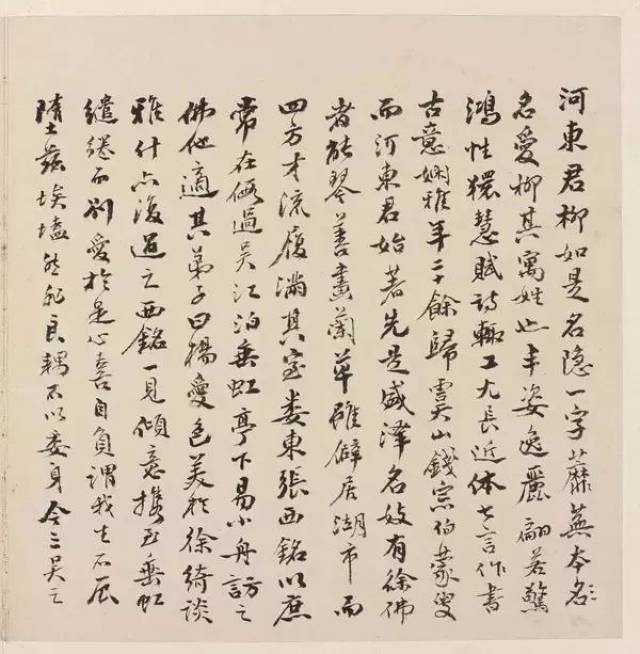 河東君柳如是名隐一字蘼蕪本名
名愛柳其寓姓也丰姿逸麗翩若驚
鴻性獧慧賦詩輒工尤長近体七言作書
古意嫻雅年二十餘歸虞山錢宗伯蒙叟
而河東君始著先是盛澤名妓有徐佛
者能琴善畫蘭草雖僻居湖市而
四方才流履滿其室婁東張西銘以庶
常在假過吳江泊垂虹亭下易小舟訪之
佛他適其弟子曰楊愛色美於徐綺談
雅什亦復過之西銘一見傾意攜至垂虹
繾綣而別愛於是心喜自負謂我生不辰
墮茲埃壒然非良耦不以委身今三吳之